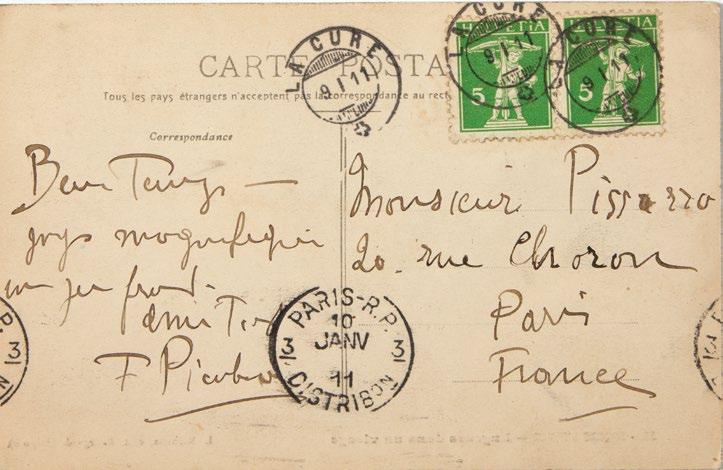 CARTE POSTA
Tous les pays étrangers n'acceptent pas la correspondance au rect
Correspondance
LA CURE
9 I 11
HELVETIA
5
LA CURE
9 I 11
HELVETIA
5
LA CURE
9 I 11
Beau Temps —
pays magnifique
un peu froid.
amitiés
F Picabia
Monsieur Pissarro
20. rue Choron
Paris
France
PARIS-R.P.
10
JANV
3 3
11
DISTRIBON
3
3